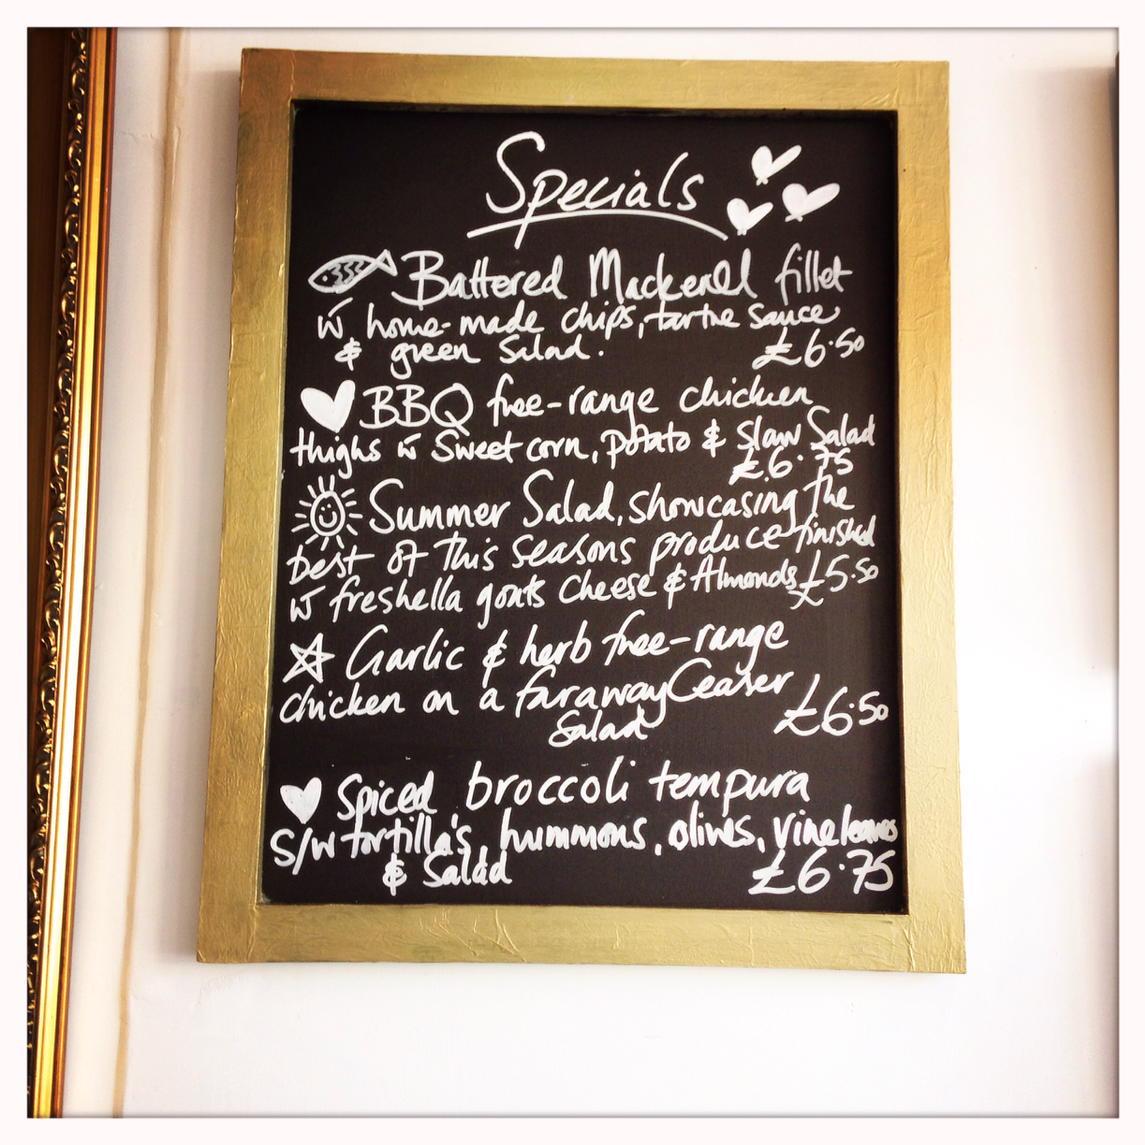 Specials
Battered Mackerel fillet
w home-made chips, tartre sauce
& green Salad.
£6.50
BBQ free-range chicken
thighs w Sweet corn, potato & Slaw Salad
£6.75
Summer Salad, showcasing the
best of this seasons produce finished
w freshella goats cheese & Almonds £5.50
Garlic & herb free-range
chicken on a faraway Ceaser
Salad
£6.50
Spiced broccoli tempura
s/w tortilla's hummous, olives, vine leaves
& Salad
£6.75